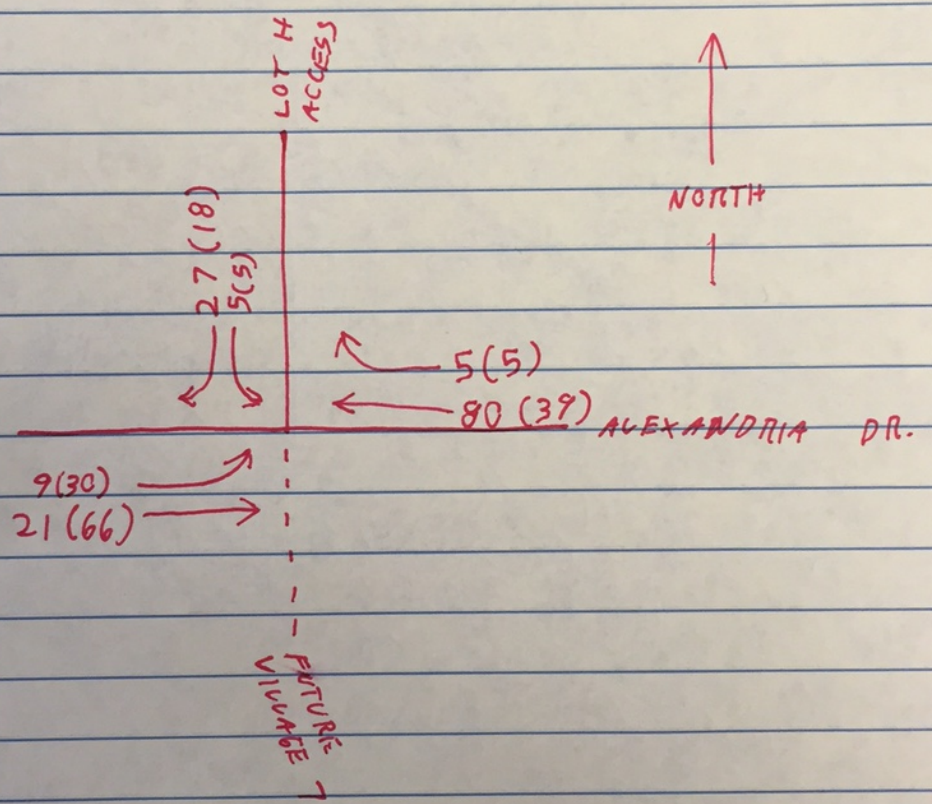 LOT H
ACCESS
NORTH
27 (18)
5(5)
5(5)
80 (39)
ALEXANDRIA DR.
9(30)
21 (66)
FUTURE
VILLAGE 7